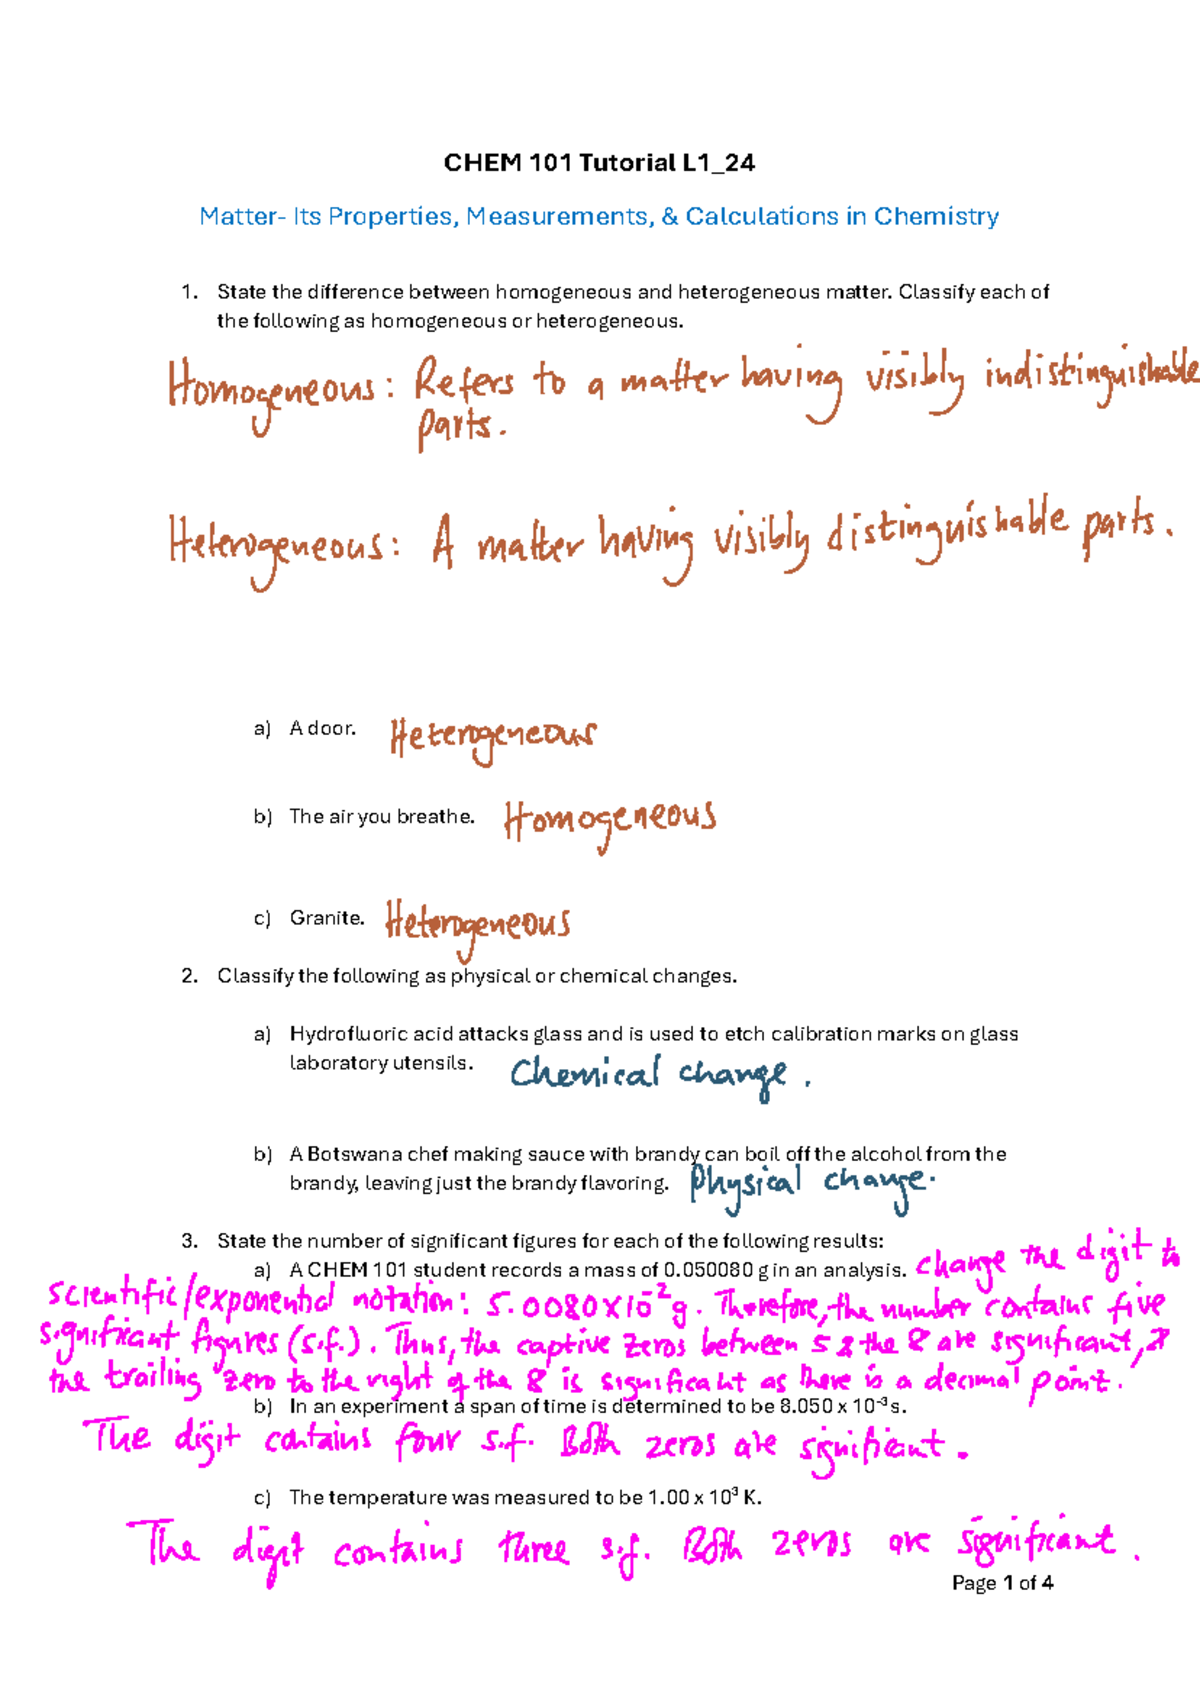 CHEM 101 Tutorial L1_24
Matter- Its Properties, Measurements, & Calculations in Chemistry
1. State the difference between homogeneous and heterogeneous matter. Classify each of
the following as homogeneous or heterogeneous.
Homogeneous: Refers to a matter having visibly indistinguishable
parts.
Heterogeneous: A matter having visibly distinguishable parts.
a) A door. Heterogeneous
b) The air you breathe. Homogeneous
c) Granite. Heterogeneous
2. Classify the following as physical or chemical changes.
a) Hydrofluoric acid attacks glass and is used to etch calibration marks on glass
laboratory utensils. Chemical change.
b) A Botswana chef making sauce with brandy can boil off the alcohol from the
brandy, leaving just the brandy flavoring. Physical change.
3. State the number of significant figures for each of the following results:
a) A CHEM 101 student records a mass of 0.050080 g in an analysis. change the digit to
scientific/exponential notation: 5.0080x10⁻²g. Therefore, the number contains five
significant figures (s.f.). Thus, the captive zeros between 5 & the 8 are significant, &
the trailing zero to the right of the 8 is significant as there is a decimal point.
b) In an experiment a span of time is determined to be 8.050 x 10⁻³ s.
The digit contains four s.f. Both zeros are significant.
c) The temperature was measured to be 1.00 x 10³ K.
The digit contains three s.f. Both zeros are significant.
Page 1 of 4